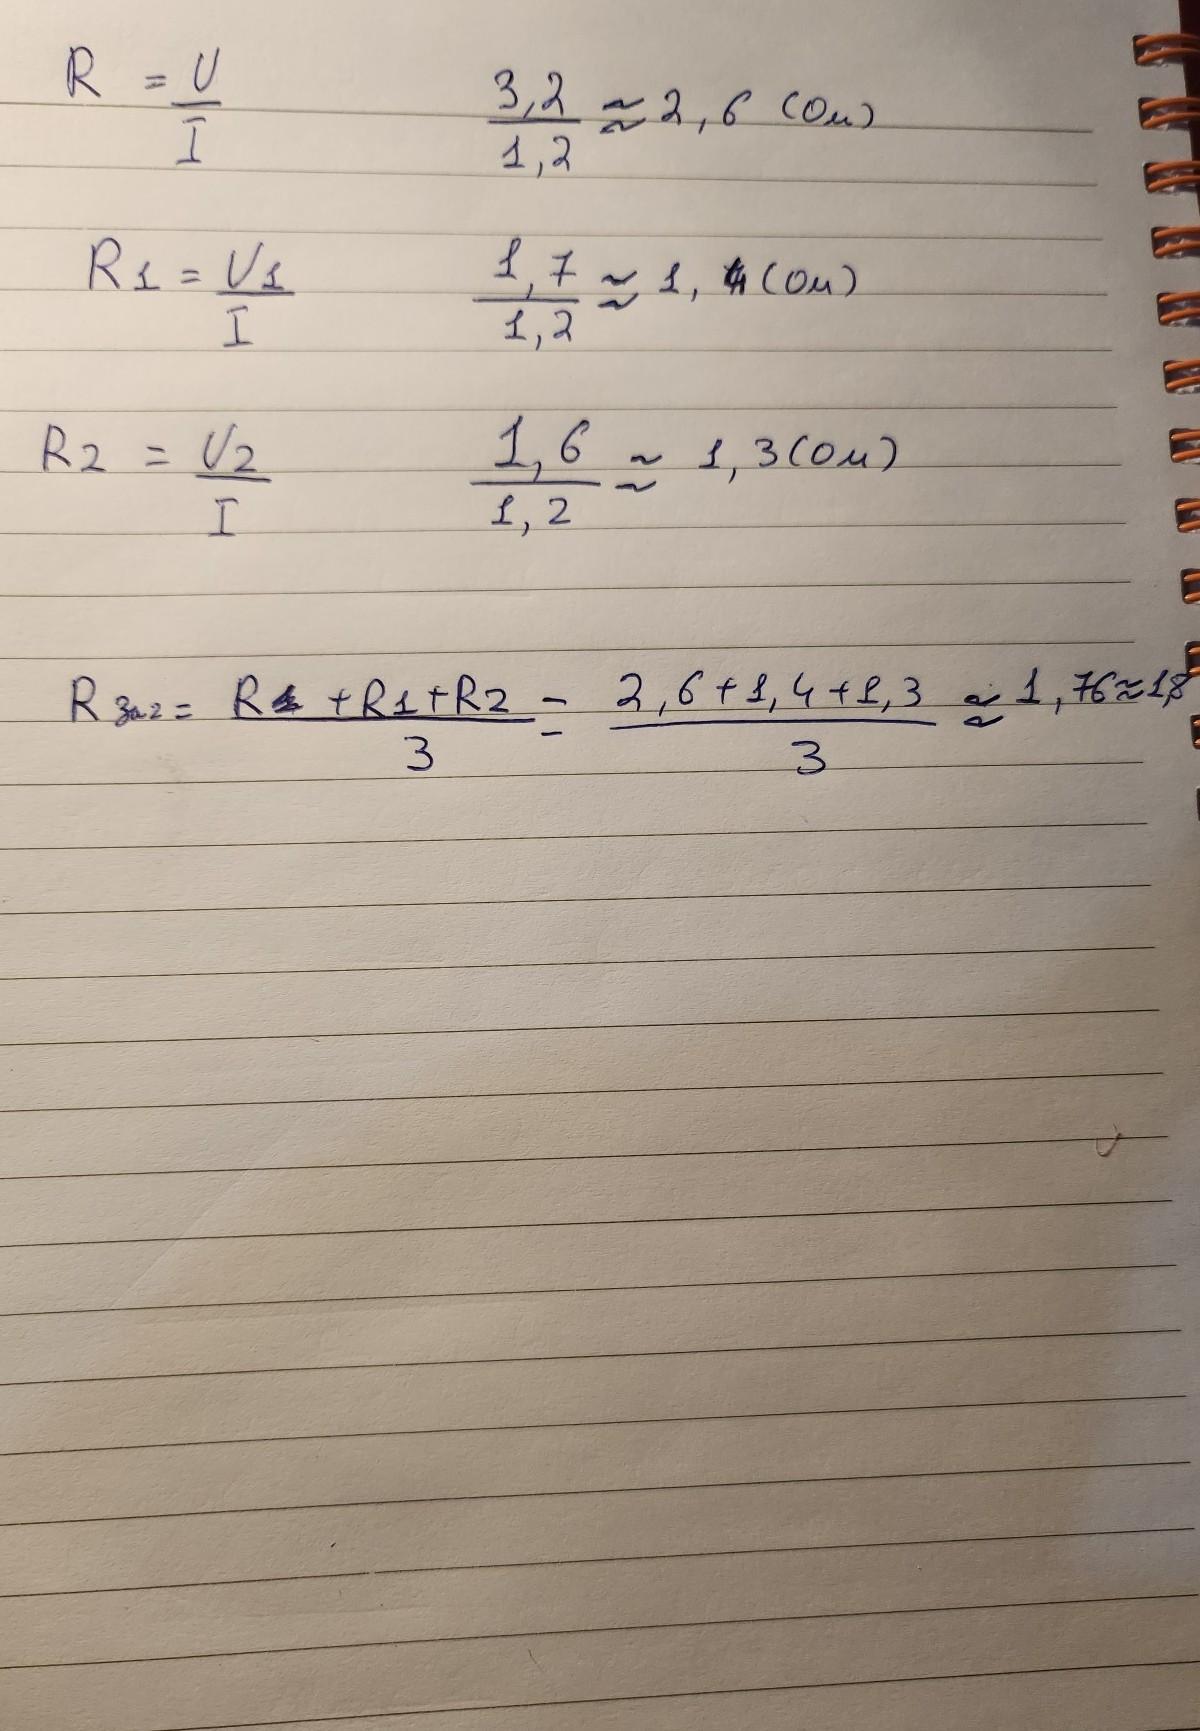 R = U/I 3,2/1,2 ≈ 2,6 (Ом)
R1 = U1/I 1,7/1,2 ≈ 1,4 (Ом)
R2 = U2/I 1,6/1,2 ≈ 1,3 (Ом)
R заг = R + R1 + R2/3 = 2,6 + 1,4 + 1,3/3 ≈ 1,76 ≈ 1,8